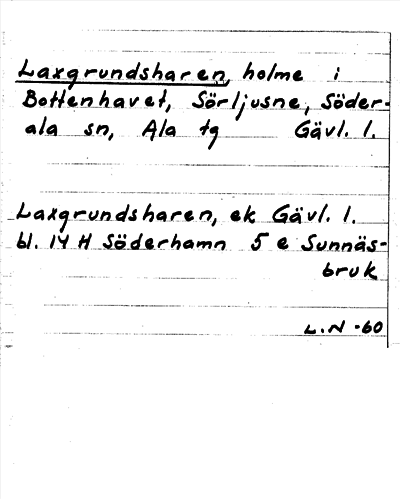 Laxgrundsharen, holme i
Bottenhavet, Sörljusne, Söder-
ala sn, Ala tg Gävl. l.
Laxgrundsharen, ek Gävl. l.
bl. 14 H Söderhamn 5 e Sunnäs-
bruk
L.N -60